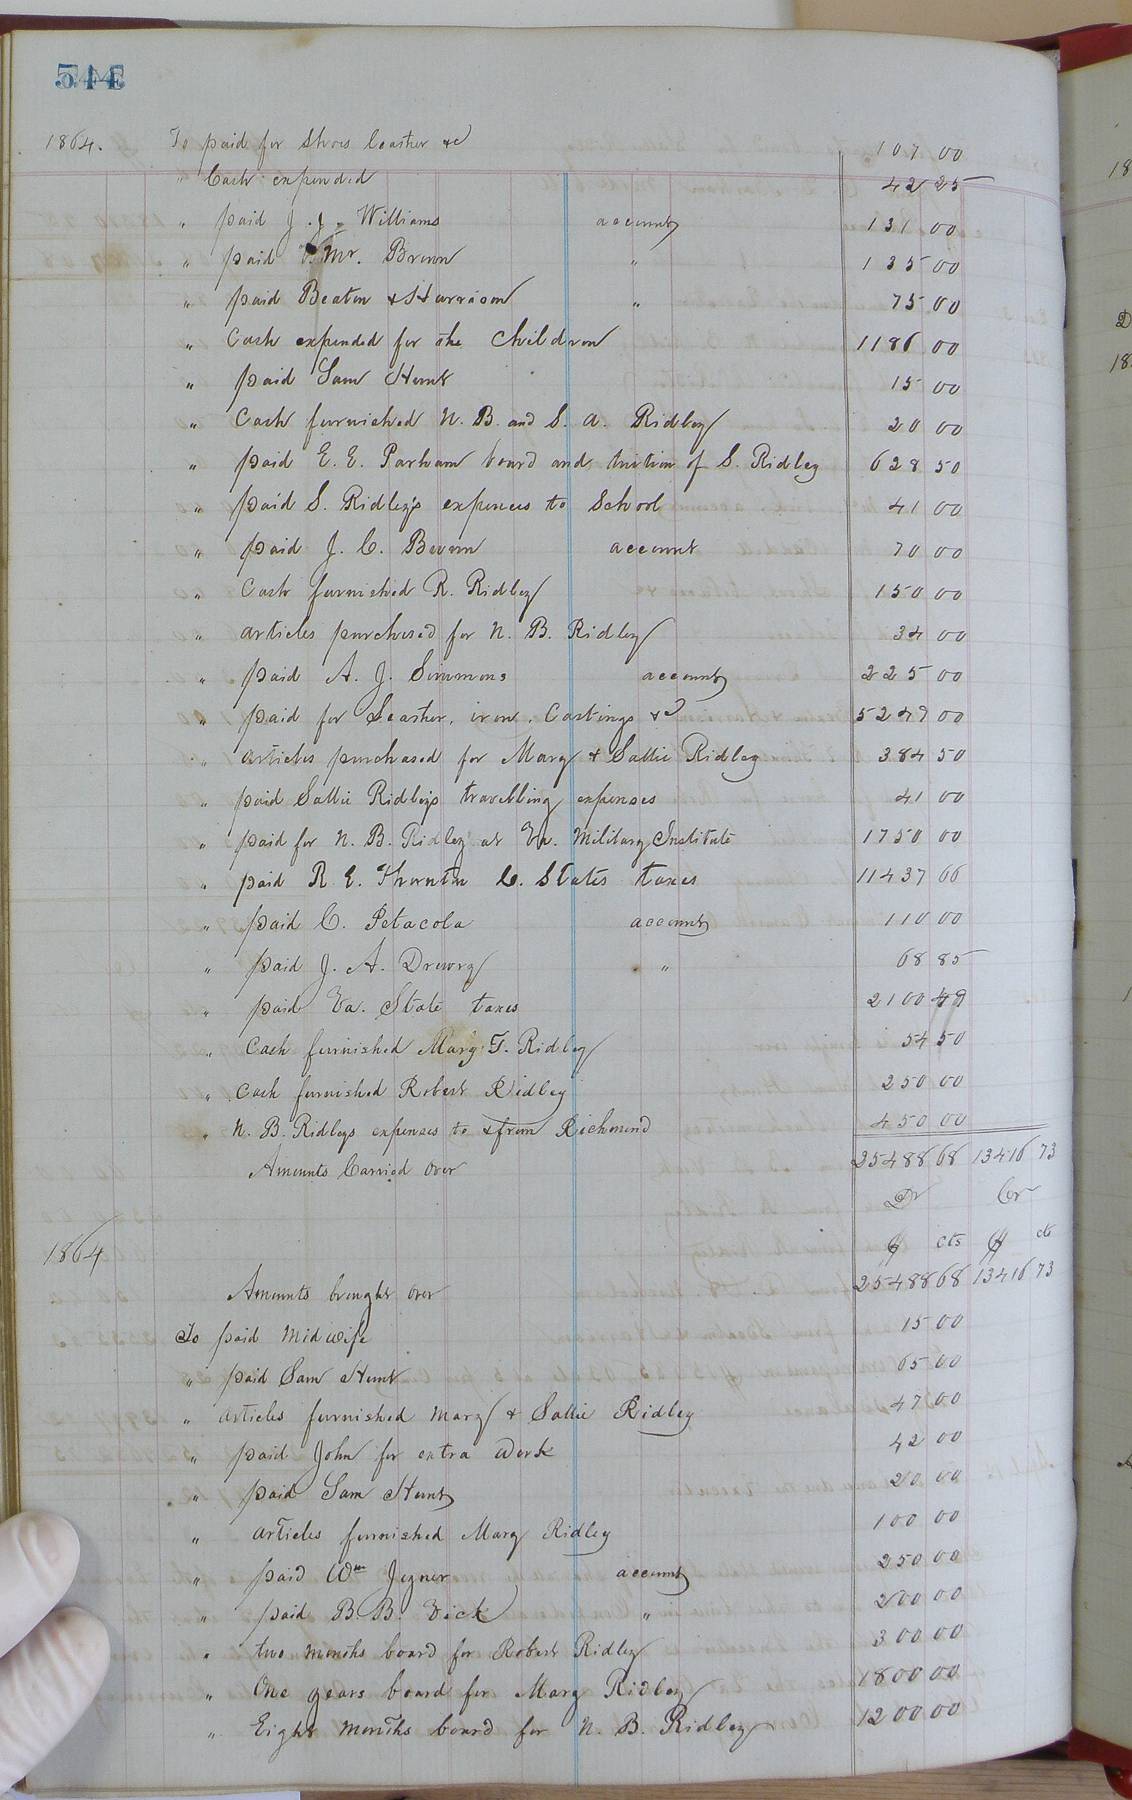 544
1864. To paid for Shoes leather &c 107 00
" Cash expended 42 25
" paid J. J. Williams account 131 00
" paid Mr. Brown " 135 00
" paid Beaton & Harrison " 75 00
" Cash expended for the Children 1186 00
" paid Sam Hunt 15 00
" Cash furnished N. B. and S. A. Ridley 20 00
" paid E. E. Parham board and tuition of S. Ridley 628 50
" paid S. Ridley's expences to School 41 00
" paid J. C. account 70 00
" Cash furnished R. Ridley 150 00
" articles purchased for N. B. Ridley 34 00
" paid A. J. Simmons account 225 00
" paid for Leather, iron, Castings &c 5249 00
" articles purchased for Mary & Sallie Ridley 384 50
" paid Sallie Ridleys travelling expenses 41 00
" paid for N. B. Ridley at Va. Military Institute 1750 00
" paid R E. Thornton C. States taxes 11437 66
" paid C. Petacola account 110 00
" paid J. A. Drewry " 68 85
" paid Va. State taxes 2100 49
" Cash furnished Mary T. Ridley 54 50
" Cash furnished Robert Ridley 250 00
" N. B. Ridleys expenses to & from Richmond 450 00
Amounts Carried over 25488 68 13416 73
Dr Cr
1864 $ cts $ cts
Amounts brought over 25488 68 13416 73
To paid Midwife 15 00
" paid Sam Hunt 65 00
" articles furnished Mary & Sallie Ridley 47 00
" paid John for extra work 42 00
" paid Sam Hunt 20 00
" articles furnished Mary Ridley 100 00
" paid Wm Joyner account 250 00
" paid B. B. Vick " 200 00
" two months board for Robert Ridley 300 00
" One years board for Mary Ridley 1800 00
" Eight months board for N. B. Ridley 1200 00